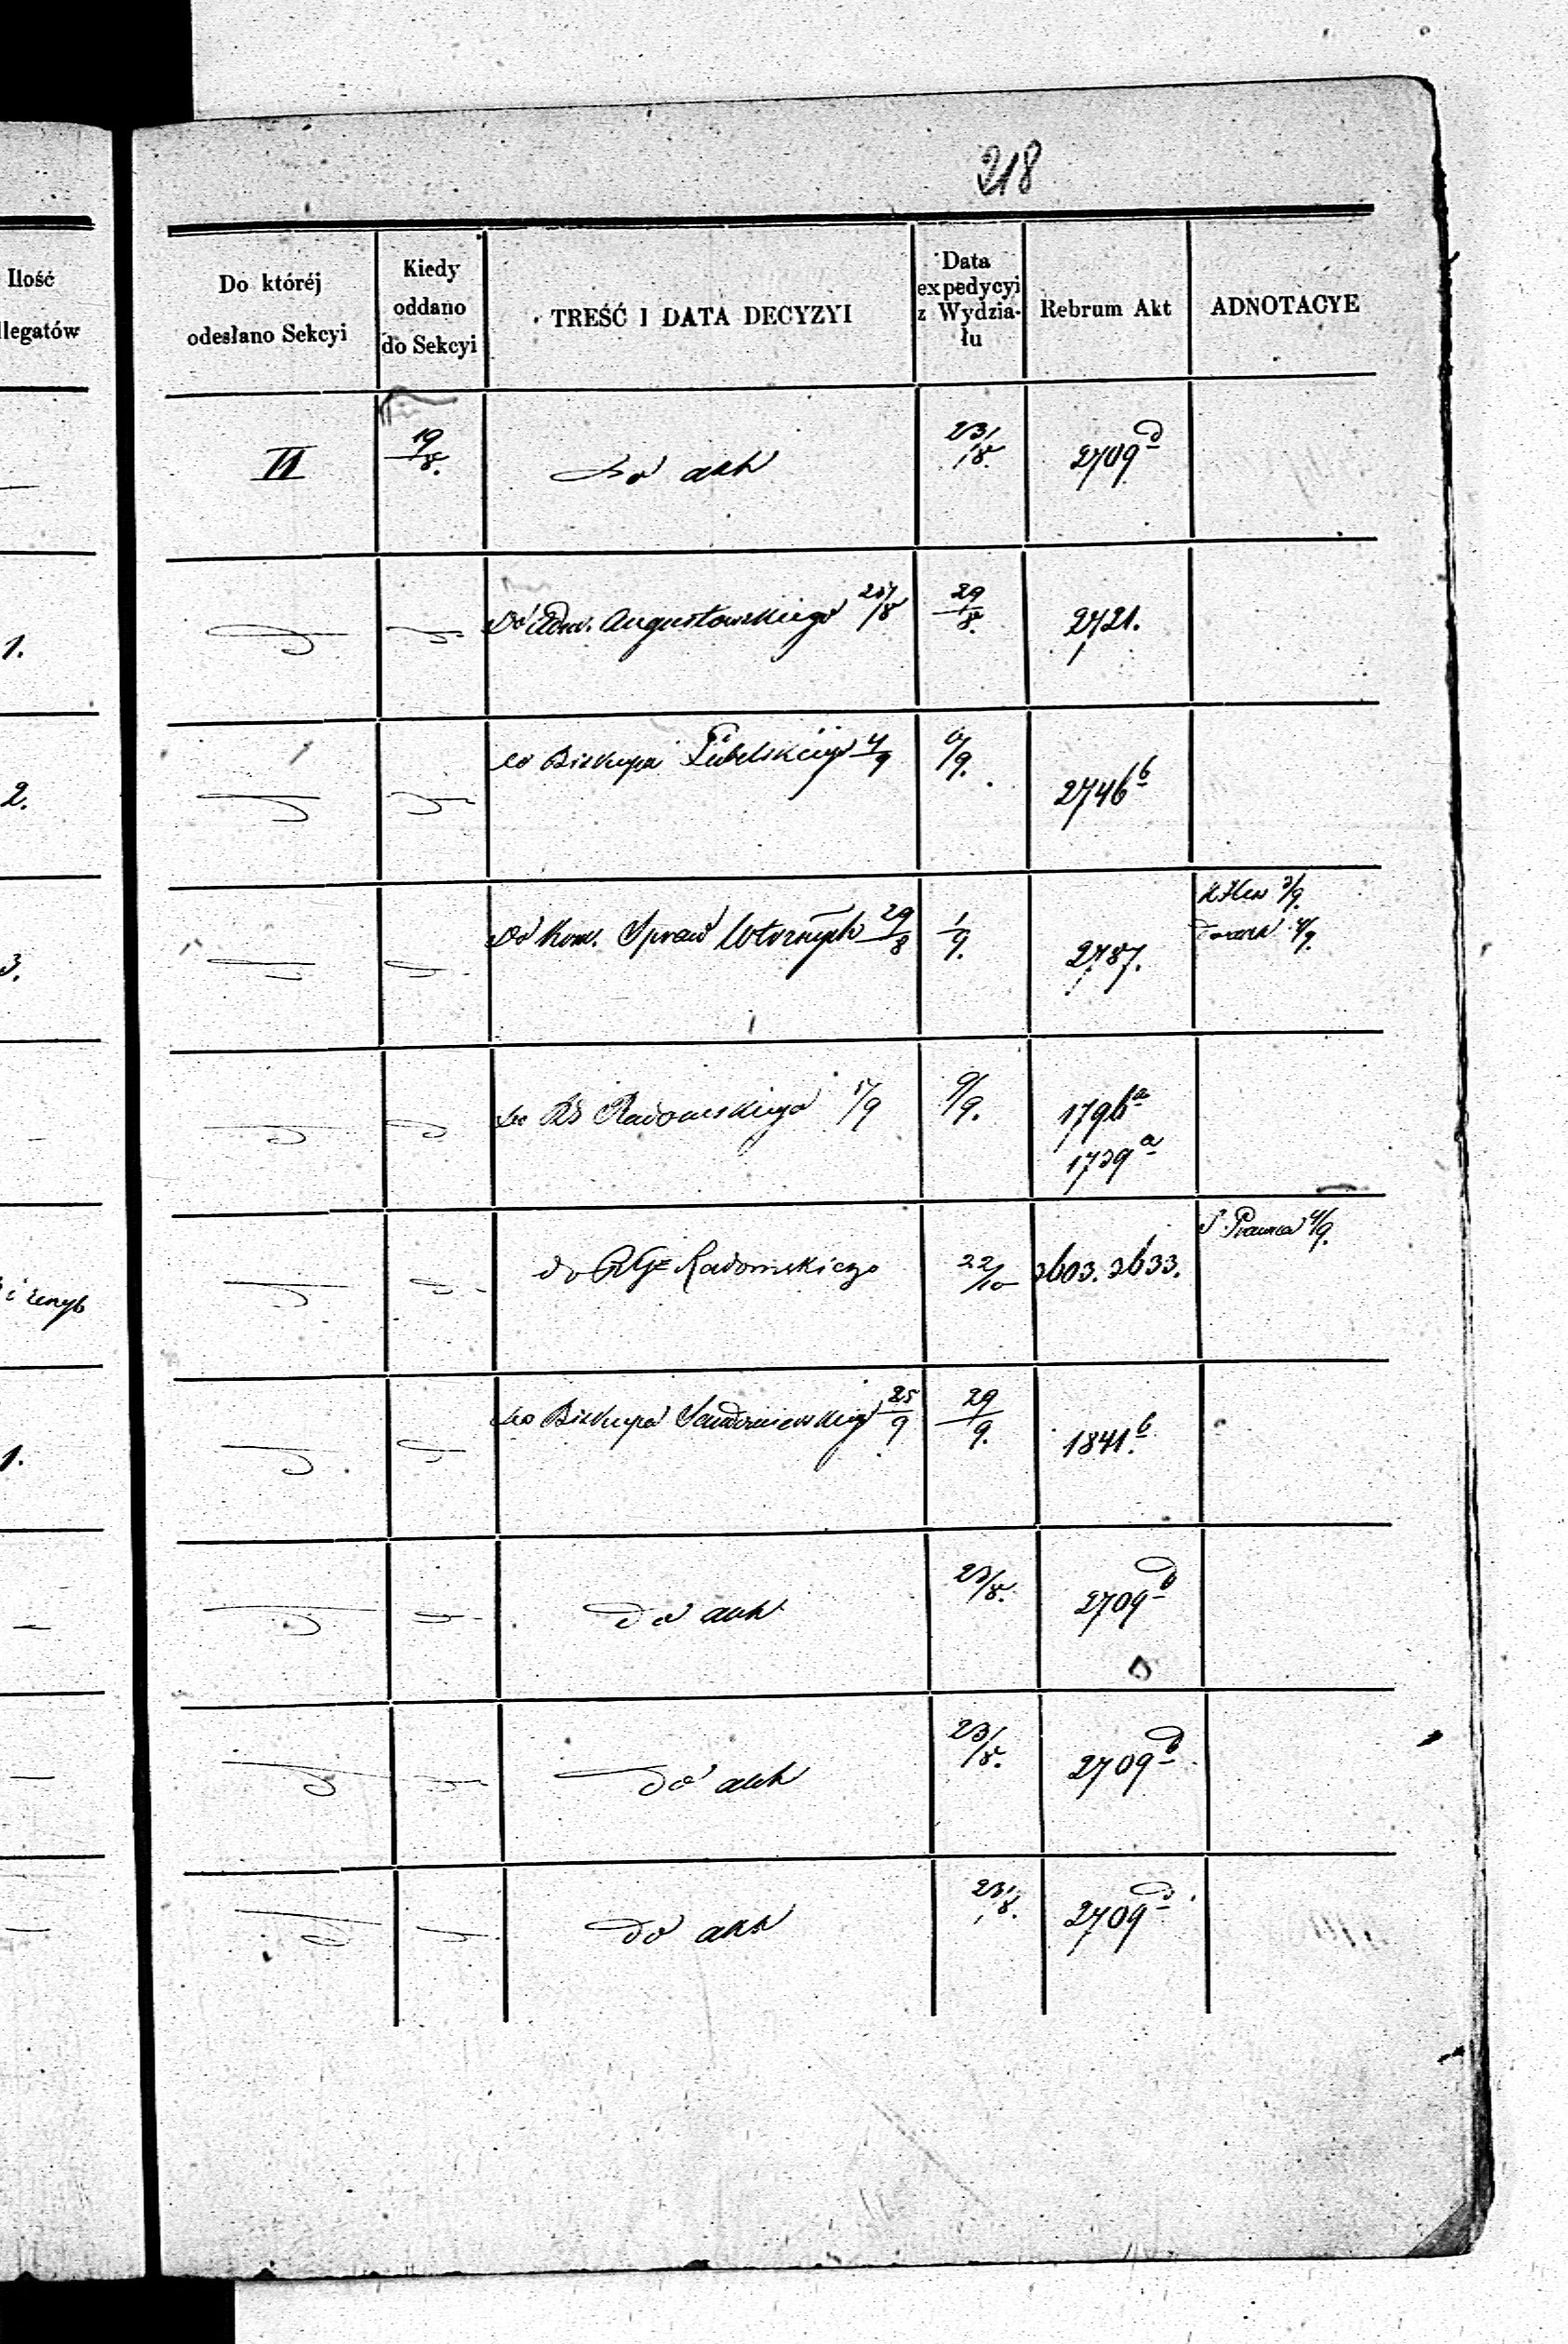 218
Ilość
llegatów
Do któréj
odesłano Sekcyi
Kiedy
oddano
do Sekcyi
TREŚĆ I DATA DECYZYI
Data
expedycyi
z Wydzia-
łu
Rebrum Akt
ADNOTACYE
VI 19/8. do akt 23/8. 2709 d
1. Do Adm. Augustowskiego 27/8 29/8. 2721.
2. do Biskupa Lubelskiego 4/9 6/9. 2746 b
3. Do Kom. Spraw Wewnętrznych 29/8 1/9. 2787.
do Radomskiego 5/9 9/9. 1796 a
1739 a
do RGo Radomskiego 22/10 2603. 2633.
S. Prawna 4/9.
1. do Biskupa Sandomierskiego 25/9 29/9. 1841. b
do akt 23/8. 2709 d
do akt 23/8. 2709 d
do akt 23/8. 2709 d